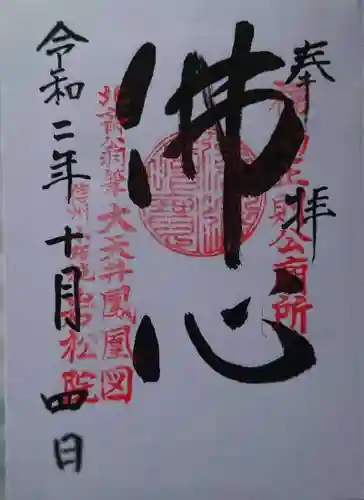 奉拝
福島正則公霊廟所
佛心
北斎翁筆 大天井鳳凰図
信州小布施 岩松院
令和二年十月四日